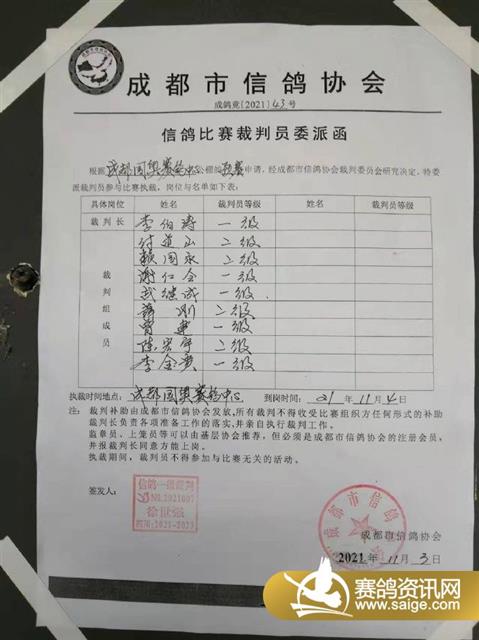 成都市信鸽协会
成鸽竞(2021)43号
信鸽比赛裁判员委派函
根据成都国奥赛鸽中心公棚的预赛申请，经成都市信鸽协会裁判委员会研究决定，特委
派裁判员参与比赛执裁，岗位与名单如下表：
具体岗位 姓名 裁判员等级 姓名 裁判员等级
裁判长 李伯涛 一级
付道山 二级
赖国永 二级
裁判组成员 谢仁全 一级
武继成 一级
刚 二级
曾建 一级
陈宏宇 二级
李金贵 一级
执裁时间地点：成都国奥赛鸽中心 到岗时间：21年11月4日
注： 裁判补助由成都市信鸽协会发放，所有裁判不得收受比赛组织方任何形式的补助
裁判长负责各项准备工作的落实，并亲自执行裁判工作。
监章员、上笼员等可以由基层协会推荐，但必须是成都市信鸽协会的注册会员，
并报裁判长同意方能上岗。
执裁期间，裁判员不得参加与比赛无关的活动。
签发人：
信鸽一级裁判
NO.2021007
徐世强
四川:2021-2023
成都市信鸽
成都市信鸽协会
2021年11月3日
赛鸽资讯网
www.saige.com